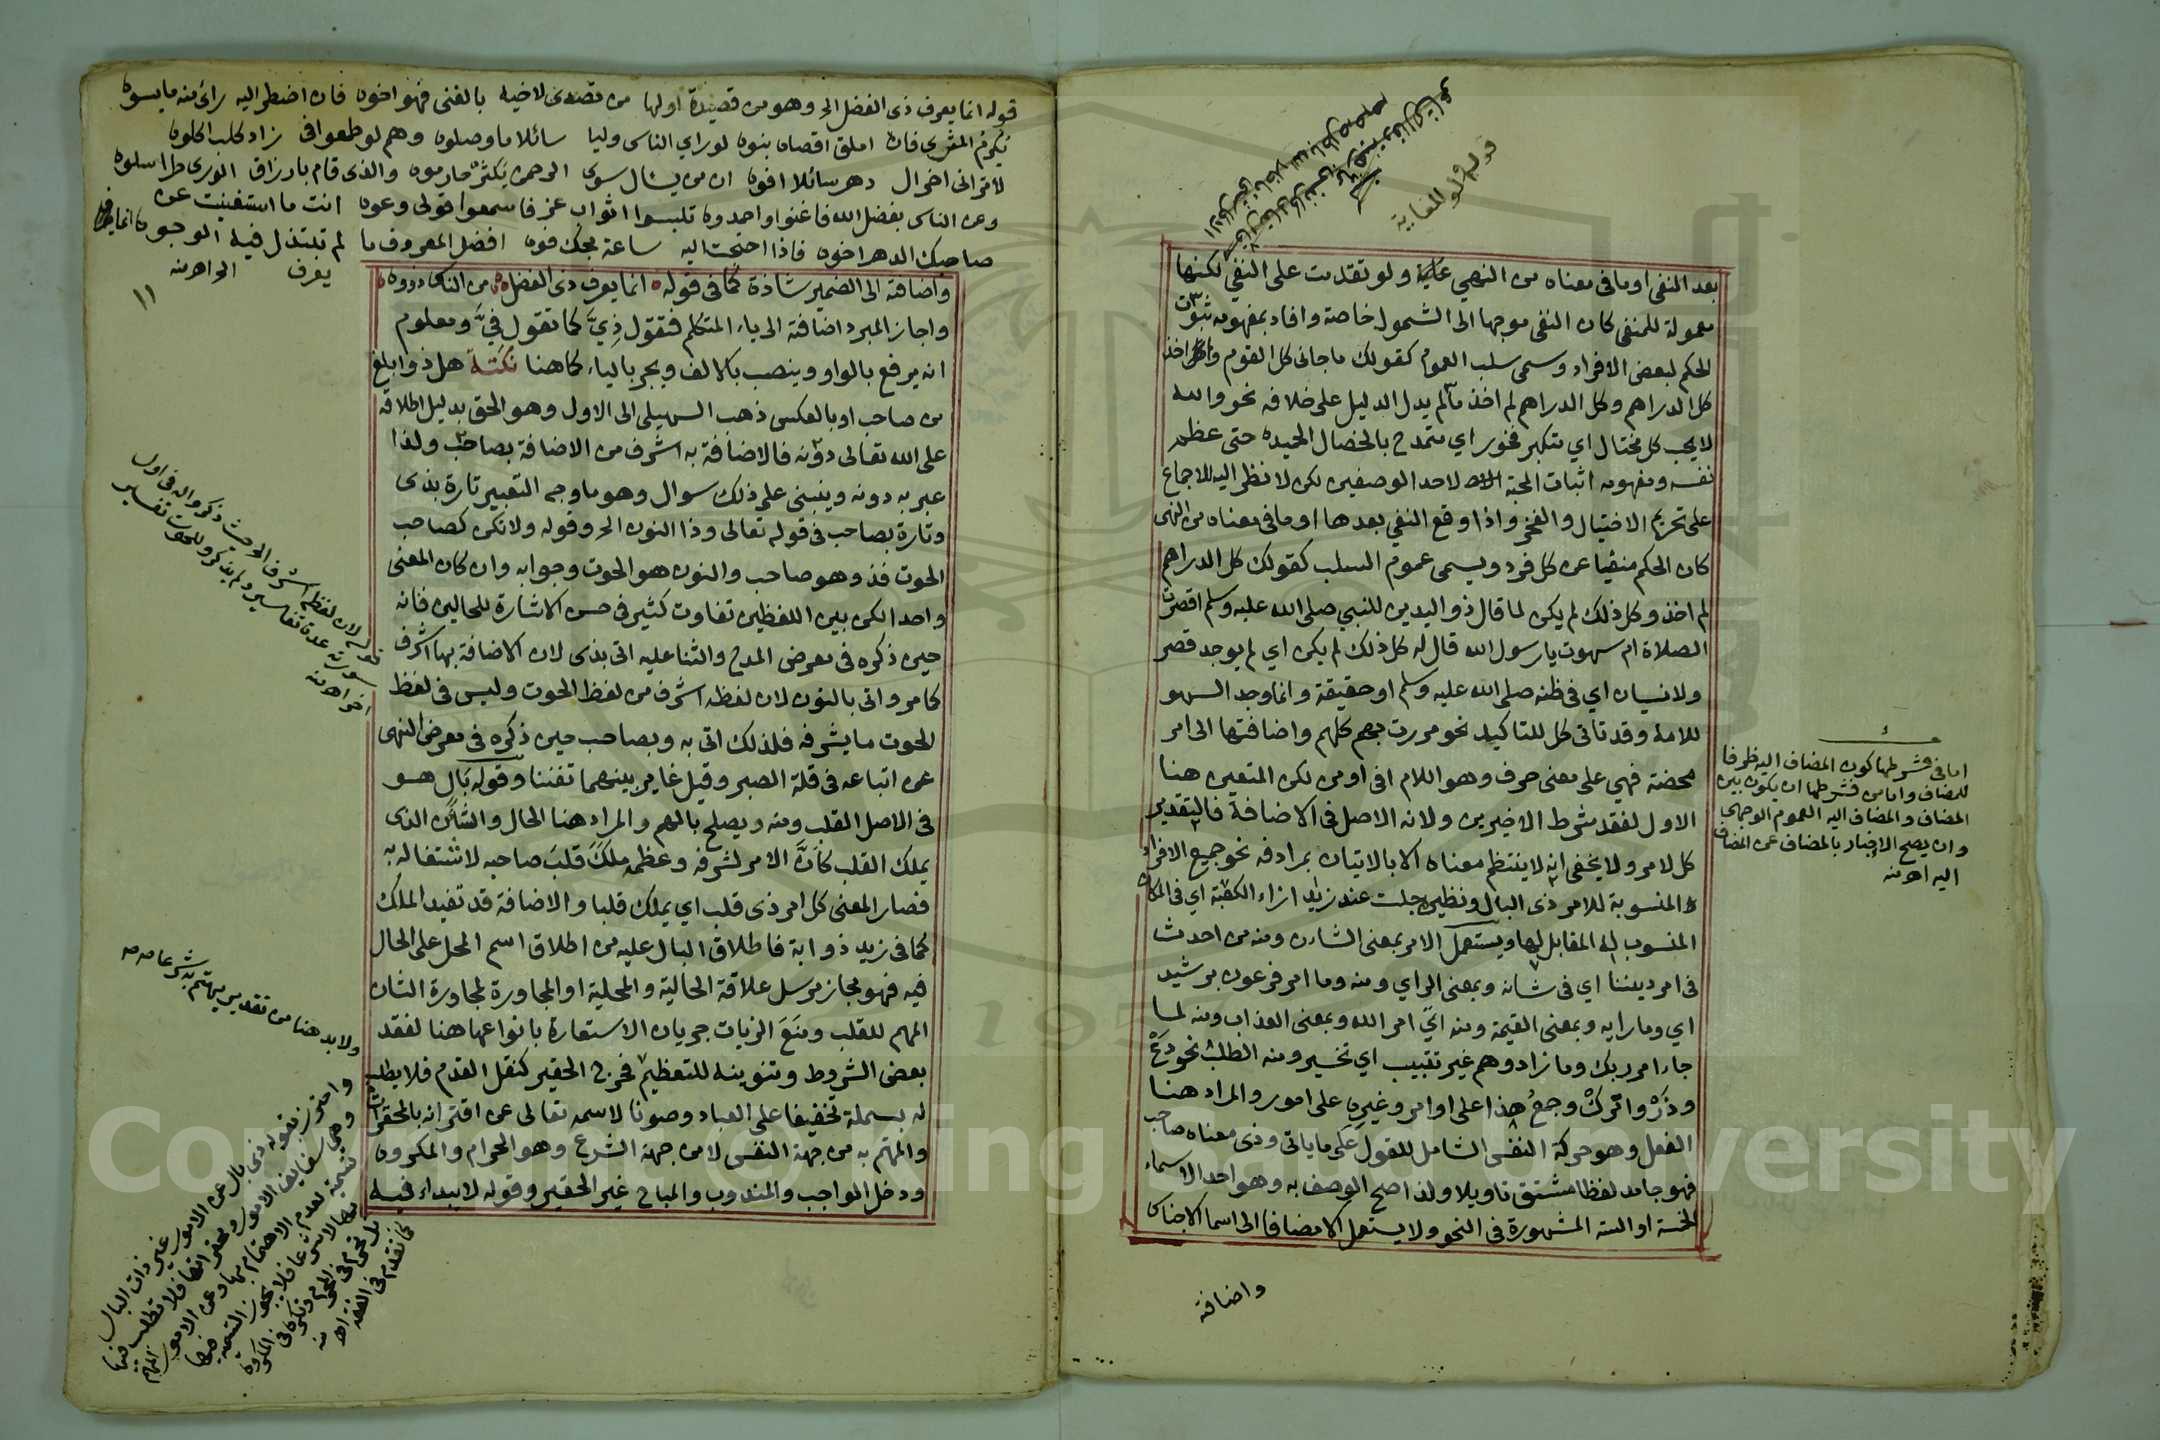 بعد النفى او ما فى معناه من النهي عاملة ولو تقدمت على النفي لكنها
معمولة للمنفى كان النفى موجها الى الشمول خاصة وافاد بمفهومه ثبوت
الحكم لبعض الافراد وسمى سلب العموم كقولك ما جانى كل القوم ولم اخذ
كل الدراهم وكل الدراهم لم اخذ ما لم يدل الدليل على خلافه نحو والله
لا يحب كل مختال اي متكبر فخور اي متمدح بالخصال الحميده حتى عظم
نفسه ومفهومه اثبات المحبة لاحد الوصفين لكن لا نظر اليه للاجماع
على تحريم الاختيال والفخر واذا وقع النفي بعدها او ما فى معناه من النهى
كان الحكم منفيا عن كل فرد ويسمى عموم السلب كقولك كل الدراهم
لم اخذ وكل ذلك لم يكن لما قال ذو اليدين للنبي صلى الله عليه وسلم اقصرت
الصلاة ام سهوت يا رسول الله قال له كل ذلك لم يكن اي لم يوجد قصر
ولا نسيان اي فى ظنه صلى الله عليه وسلم او حقيقة وانما وجد السهو
للامة وقد تاتى كل للتاكيد نحو مررت بهم كلهم واضافتها الى امر
محضة فهي على معنى حرف وهو اللام او فى او من لكن المتعين هنا
الاول لفقد شرط الاخيرين ولانه الاصل فى الاضافة فالتقدير
كل لامر ولا يخفى انه لا ينتظم معناه الا بالاتيان بمرادفه نحو جميع الافراد
المنسوبة للامر ذى البال ونظيره جلست عند زيد ازاء الكعبة اي فى المكان
المنسوب له المقابل لها ويستعمل الامر بمعنى الشان ومنه من احدث
فى امر ديننا اي فى شانه وبمعنى الراي ومنه وما امر فرعون برشيد
اي وما رايه وبمعنى القيمة ومنه اتى امر الله وبمعنى العذاب ومنه لما
جاء امر ربك وما زادوهم غير تتبيب اي تخسير ومنه الطلب نحو دع
وذر واترك وجمع هذا على اوامر وغيره على امور والمراد هنا
الفعل وهو حركة النفس الشامل للقول على ما ياتى وذى معناه صاحب
فهو جامد لفظا مشتق تاويلا ولذا صح الوصف به وهو احد الاسماء
الخمسة او الستة المشهورة فى النحو ولا يستعمل الا مضافا الى اسما الاجناس
واضافة
قوله ولو للغاية
اما فى فشرطها كون المضاف اليه ظرفا
للمضاف واما من فشرطها ان يكون بين
المضاف والمضاف اليه العموم الوجهي
وان يصح الاخبار بالمضاف عن المضاف
اليه اهـ منه
قوله انما يعرف ذى الفضل الخ وهو من قصيدة اولها من تصدى لاخيه بالغنى فهو اخوه فان اضطر اليه راى منه ما يسوه
يكرم المثرى فان املق اقصاه بنوه لو راي الناس وليا سائلا ما وصلوه وهم لو طمعوا فى زاد كلب اكلوه
لا ترانى اخر الدهر سائلا افوه ان من يسال سوى الرحمن يكثر حارموه والذى قام بارزاق الورى طرا سلوه
وعن الناس بفضل الله فاغنوا واحمدوه تلبسوا اثواب عز فاسمعوا قولى وعوه انت ما استغنيت عن
صاحبك الدهر اخوه فاذا احتجت اليه ساعة مجك فوه افضل المعروف ما لم تبتذل فيه الوجوه انما
يعرف الخ اهـ منه
١١
واضافته الى الضمير شاذة كما فى قوله انما يعرف ذى الفضل من الناس ذووه
واجاز المبرد اضافة الى ياء المتكلم فتقول ذيَّ كما تقول فيَّ ومعلوم
انه يرفع بالواو وينصب بالالف ويجر بالياء كما هنا نكتة هل ذو ابلغ
من صاحب او بالعكس ذهب السهيلى الى الاول وهو الحق بدليل اطلاقه
على الله تعالى دونه فالاضافة به اشرف من الاضافة بصاحب ولذا
عبر به دونه وينبنى على ذلك سوال وهو ما وجه التعبير تارة بذى
وتارة بصاحب فى قوله تعالى وذا النون الخ وقوله ولا تكن كصاحب
الحوت فذو هو صاحب والنون هو الحوت وجوابه وان كان المعنى
واحدا لكن بين اللفظين تفاوت كثير فى حسن الاشارة للحالين فانه
حين ذكره فى معرض المدح والثنا عليه اتى بذى لان الاضافة بها اشرف
كما مر واتى بالنون لان لفظه اشرف من لفظ الحوت وليس فى لفظ
الحوت ما يشرفه فلذلك اتى به وبصاحب حين ذكره فى معرض النهى
عن اتباعه فى قلة الصبر وقيل غاير بينهما تفننا وقوله بال هو
فى الاصل القلب ومنه ويصلح بالهم والمراد هنا الحال والشان الذى
يملك القلب كأن الامر لشرفه وعظمه ملك قلب صاحبه لاشتغاله به
فصار المعنى كل امر ذى قلب اي يملك قلبا والاضافة قد تفيد الملك
كما فى زيد ذو ابة فاطلاق البال عليه من اطلاق اسم المحل على الحال
فيه فهو مجاز مرسل علاقة الحالية والمحلية او المجاورة لمجاورة الشان
المهم للقلب ومنع الزيات جريان الاستعارة بانواعها هنا لفقد
بعض الشروط وتنوينه للتعظيم فخرج الحقير كنقل القدم فلا يطلب
له بسملة تخفيفا على العباد وصونا لاسمه تعالى عن اقترانه بالمحقرات
والمهتم به من جهة النفس لا من جهة الشرع وهو الحرام والمكروه
ودخل الواجب والمندوب والمباح غير الحقير وقوله لا يبداء فيه
قوله لان لفظه اشرف الخ حيث ذكر والله فى اول
سورته عدة تفاسير ولم يذكر وللحوت تفسير
اخر اهـ منه
ولا بد هنا من تقدير يهتم به شرعا
واحترز بقوله ذى بال عن الامور غير ذات البال
وهى سفايف الامور ومحقراتها فلا تطلب فيها
تسمية لعدم الاهتمام بها وعن الامور المهتم
كما تقدم فى الفقه اهـ منه